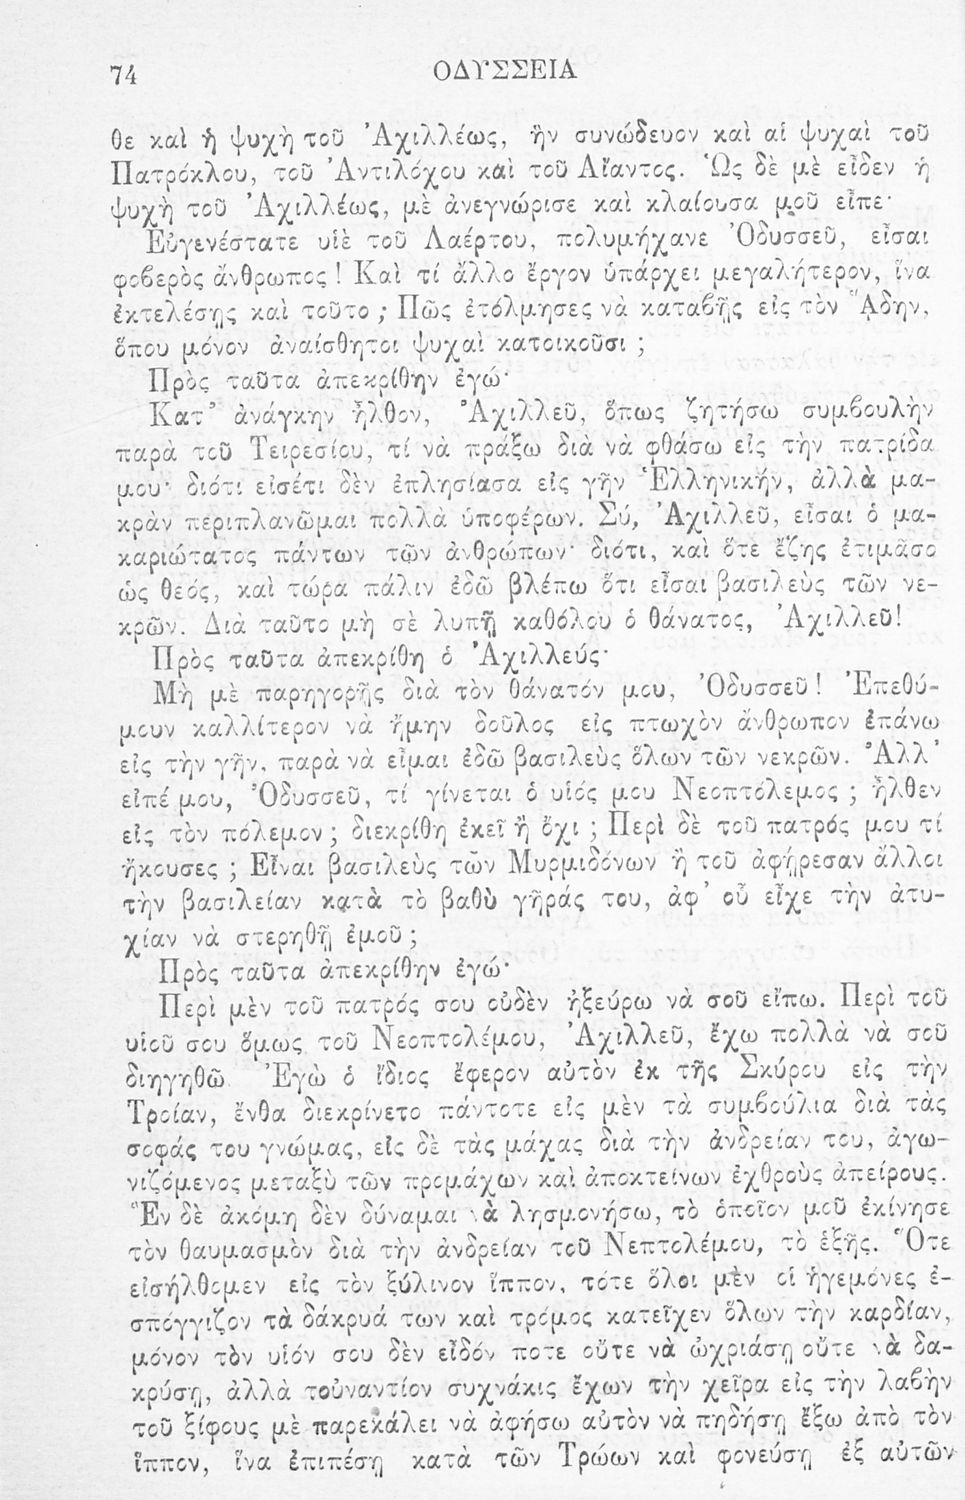 74 ΟΔΥΣΣΕΙΑ
θε καὶ ἡ ψυχὴ τοῦ Ἀχιλλέως, ἣν συνώδευον καὶ αἱ ψυχαὶ τοῦ
Πατρόκλου, τοῦ Ἀντιλόχου καὶ τοῦ Αἴαντος. Ὡς δὲ μὲ εἶδεν ἡ
ψυχὴ τοῦ Ἀχιλλέως, μὲ ἀνεγνώρισε καὶ κλαίουσα μοῦ εἶπε·
Εὐγενέστατε υἱὲ τοῦ Λαέρτου, πολυμήχανε Ὀδυσσεῦ, εἶσαι
φοβερὸς ἄνθρωπος! Καὶ τί ἄλλο ἔργον ὑπάρχει μεγαλήτερον, ἵνα
ἐκτελέσῃς καὶ τοῦτο; Πῶς ἐτόλμησες νὰ καταβῇς εἰς τὸν Ἅδην,
ὅπου μόνον ἀναίσθητοι ψυχαὶ κατοικοῦσι;
Πρὸς ταῦτα ἀπεκρίθην ἐγώ·
Κατ' ἀνάγκην ἦλθον, Ἀχιλλεῦ, ὅπως ζητήσω συμβουλὴν
παρὰ τοῦ Τειρεσίου, τί νὰ πράξω διὰ νὰ φθάσω εἰς τὴν πατρίδα
μου· διότι εἰσέτι δὲν ἐπλησίασα εἰς γῆν Ἑλληνικήν, ἀλλὰ μα-
κρὰν περιπλανῶμαι πολλὰ ὑποφέρων. Σύ, Ἀχιλλεῦ, εἶσαι ὁ μα-
καριώτατος πάντων τῶν ἀνθρώπων· διότι, καὶ ὅτε ἔζης ἐτιμᾶσο
ὡς θεός, καὶ τώρα πάλιν ἐδῶ βλέπω ὅτι εἶσαι βασιλεὺς τῶν νε-
κρῶν. Διὰ ταῦτο μὴ σὲ λυπῇ καθόλου ὁ θάνατος, Ἀχιλλεῦ!
Πρὸς ταῦτα ἀπεκρίθη ὁ Ἀχιλλεύς·
Μὴ μὲ παρηγορῇς διὰ τὸν θάνατόν μου, Ὀδυσσεῦ! Ἐπεθύ-
μουν καλλίτερον νὰ ἤμην δοῦλος εἰς πτωχὸν ἄνθρωπον ἐπάνω
εἰς τὴν γῆν, παρὰ νὰ εἶμαι ἐδῶ βασιλεὺς ὅλων τῶν νεκρῶν. Ἀλλ'
εἰπέ μου, Ὀδυσσεῦ, τί γίνεται ὁ υἱός μου Νεοπτόλεμος; ἦλθεν
εἰς τὸν πόλεμον; διεκρίθη ἐκεῖ ἢ ὄχι; Περὶ δὲ τοῦ πατρός μου τί
ἤκουσες; Εἶναι βασιλεὺς τῶν Μυρμιδόνων ἢ τοῦ ἀφῄρεσαν ἄλλοι
τὴν βασιλείαν κατὰ τὸ βαθὺ γῆράς του, ἀφ' οὗ εἶχε τὴν ἀτυ-
χίαν νὰ στερηθῇ ἐμοῦ;
Πρὸς ταῦτα ἀπεκρίθην ἐγώ·
Περὶ μὲν τοῦ πατρός σου οὐδὲν ἠξεύρω νὰ σοῦ εἴπω. Περὶ τοῦ
υἱοῦ σου ὅμως τοῦ Νεοπτολέμου, Ἀχιλλεῦ, ἔχω πολλὰ νὰ σοῦ
διηγηθῶ. Ἐγὼ ὁ ἴδιος ἔφερον αὐτὸν ἐκ τῆς Σκύρου εἰς τὴν
Τροίαν, ἔνθα διεκρίνετο πάντοτε εἰς μὲν τὰ συμβούλια διὰ τὰς
σοφάς του γνώμας, εἰς δὲ τὰς μάχας διὰ τὴν ἀνδρείαν του, ἀγω-
νιζόμενος μεταξὺ τῶν προμάχων καὶ ἀποκτείνων ἐχθροὺς ἀπείρους.
Ἓν δὲ ἀκόμη δὲν δύναμαι νὰ λησμονήσω, τὸ ὁποῖον μοῦ ἐκίνησε
τὸν θαυμασμὸν διὰ τὴν ἀνδρείαν τοῦ Νεπτολέμου, τὸ ἑξῆς. Ὅτε
εἰσήλθομεν εἰς τὸν ξύλινον ἵππον, τότε ὅλοι μὲν οἱ ἡγεμόνες ἐ-
σπόγγιζον τὰ δάκρυά των καὶ τρόμος κατεῖχεν ὅλων τὴν καρδίαν,
μόνον τὸν υἱόν σου δὲν εἶδόν ποτε οὔτε νὰ ὠχριάσῃ οὔτε νὰ δα-
κρύσῃ, ἀλλὰ τοὐναντίον συχνάκις ἔχων τὴν χεῖρα εἰς τὴν λαβὴν
τοῦ ξίφους μὲ παρεκάλει νὰ ἀφήσω αὐτὸν νὰ πηδήσῃ ἔξω ἀπὸ τὸν
ἵππον, ἵνα ἐπιπέσῃ κατὰ τῶν Τρώων καὶ φονεύσῃ ἐξ αὐτῶν